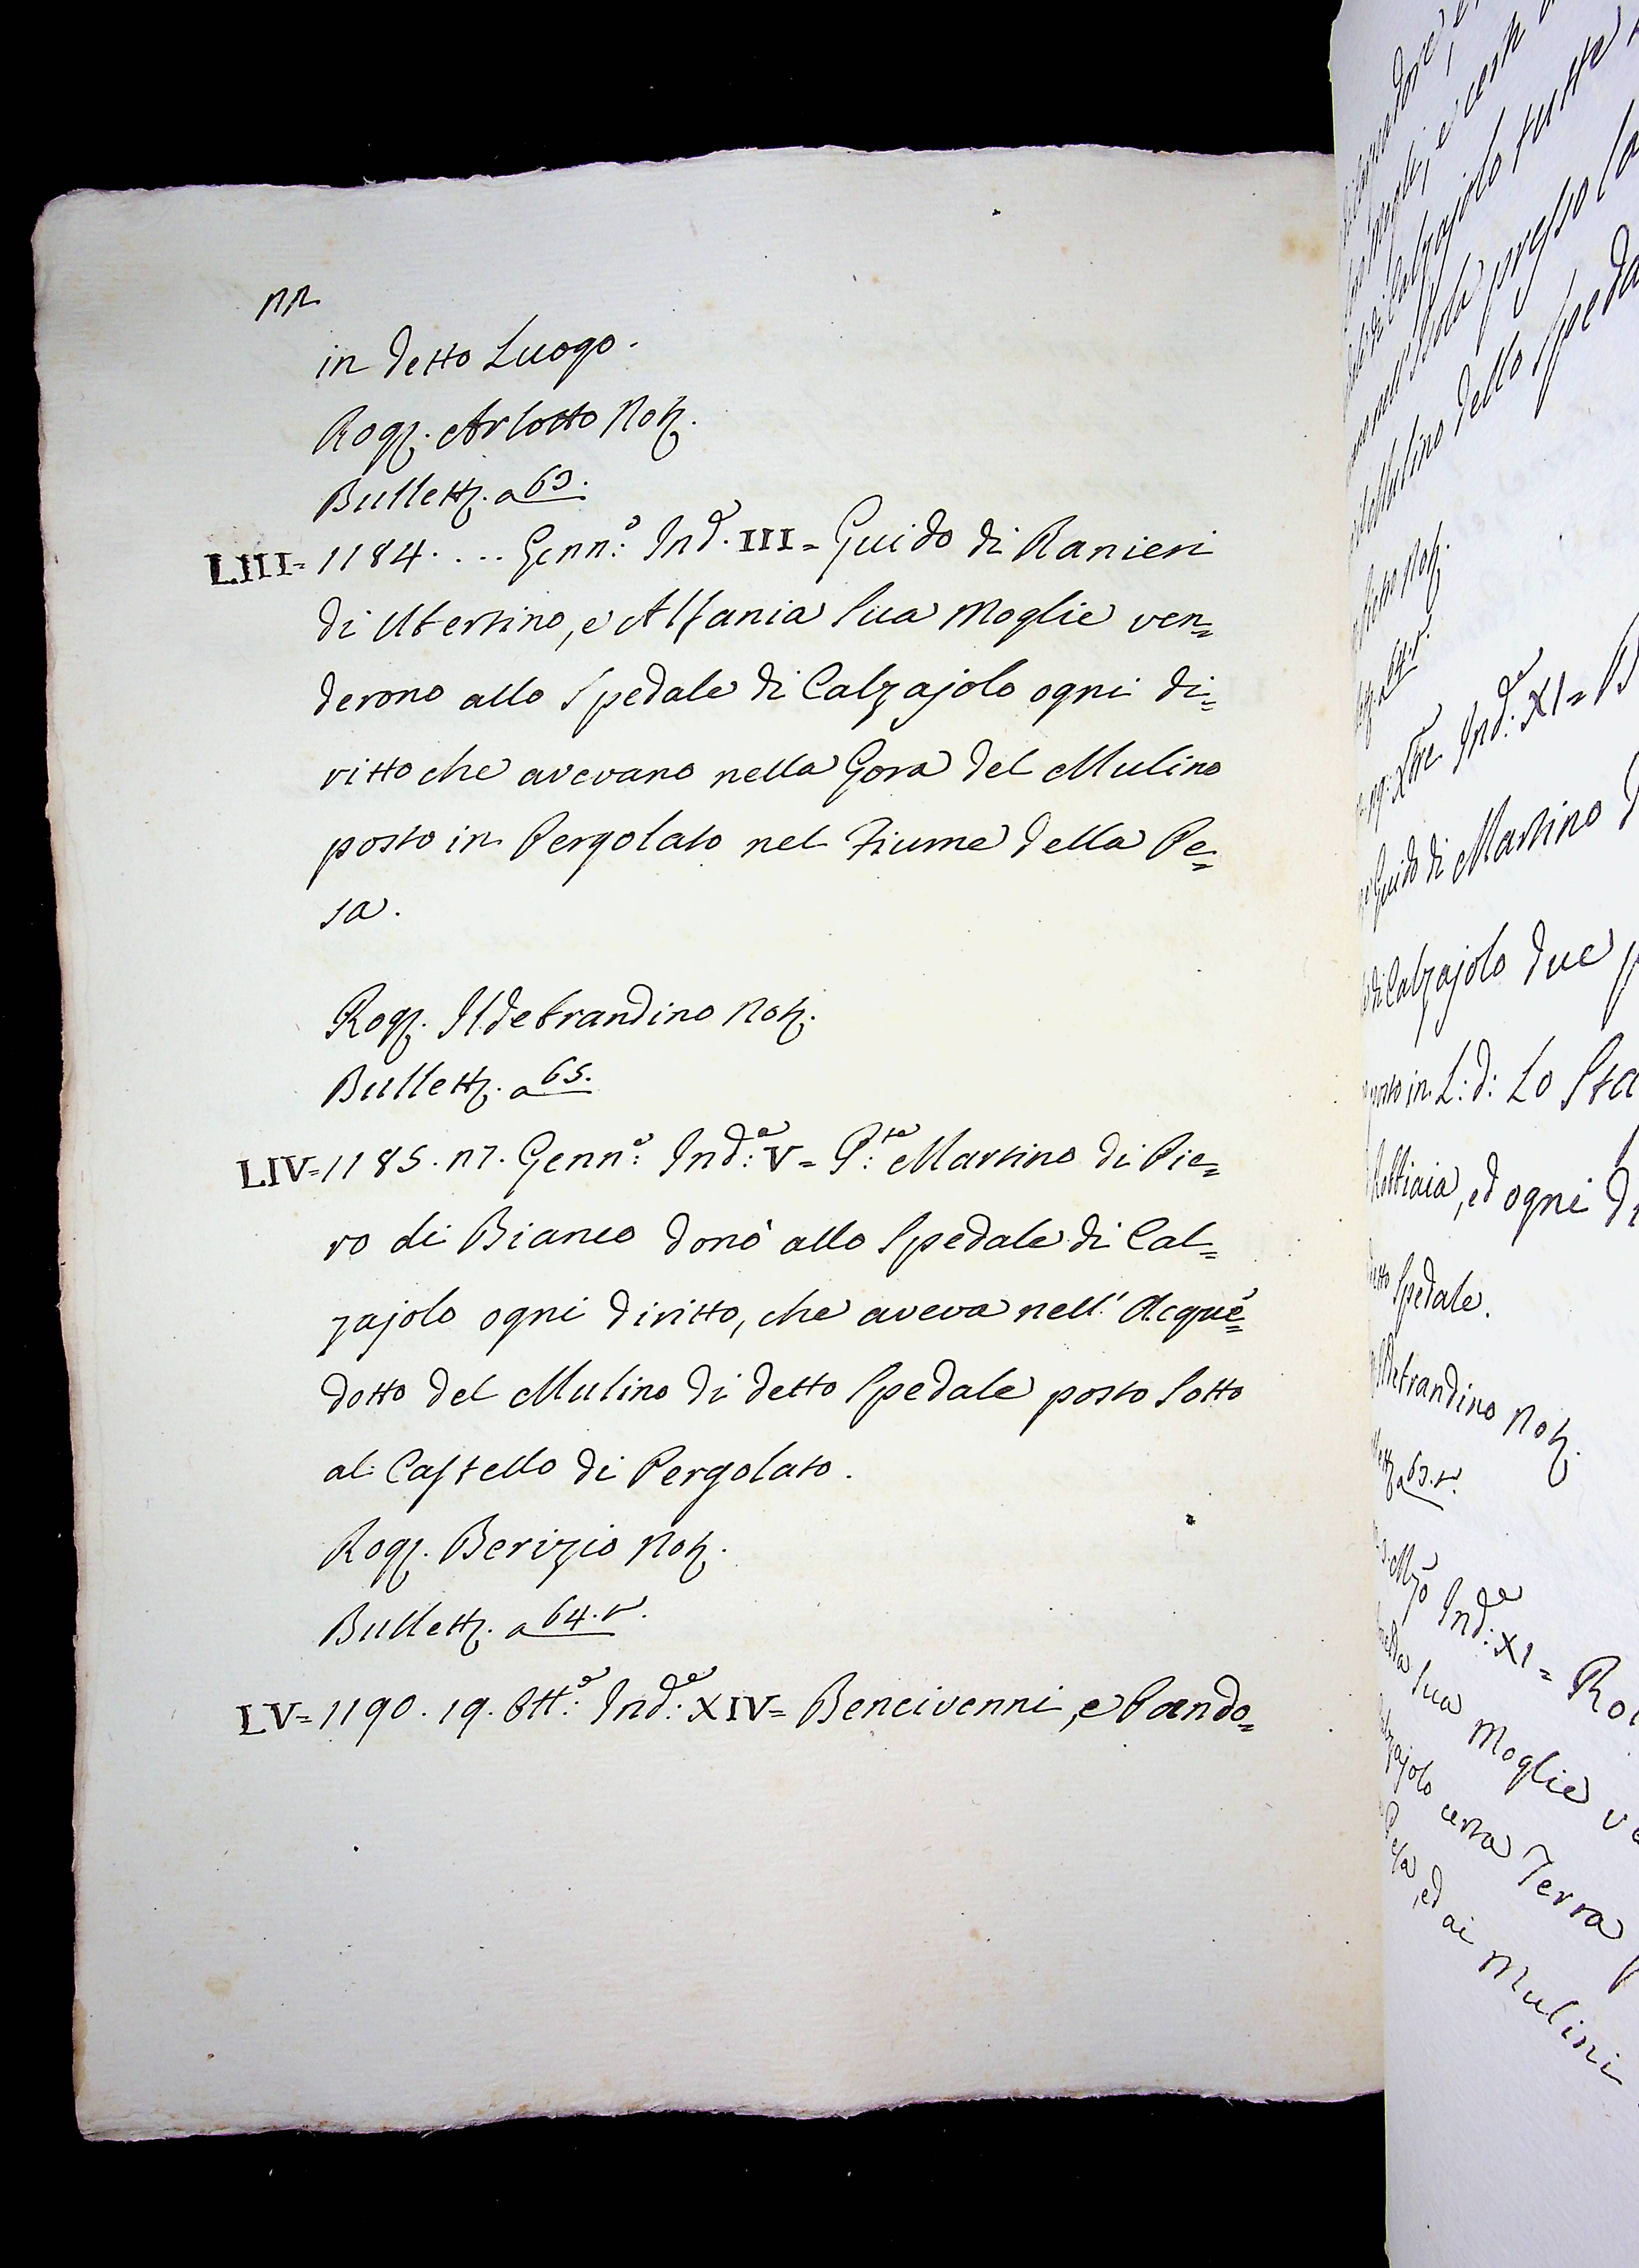 in detto Luogo.
Rogò. Arlotto Not.
Bullett. a 63.
LIII = 1184. ... Genn:º Ind. III = Guido di Ranieri
di Ubertino, e Alfania Sua Moglie ven=
derono allo Spedale di Calzajolo ogni di=
ritto che avevano nella Gora del Mulino
posto in Pergolato nel Fiume della Pe=
sa.
Rog. Ildebrandino Not.
Bullett. a 65.
LIV = 1185. 17. Genn:º Ind:ª V = P:te Martino di Pie=
ro di Bianco donò allo Spedale di Cal=
zajolo ogni diritto, che aveva nell' Acque=
dotto del Mulino di detto Spedale posto Sotto
al Castello di Pergolato.
Rog. Berizio Not.
Bullett. a 64. v.
LV = 1190. 19. Ott:e Ind:ª XIV = Bencivenni, e Pando=
Not.
64. v.
Xbre Ind:ª XI =
Guido di Martino
di Calzajolo due
posto in L: d: Lo Sta
Robbiaia, ed ogni di
detto Spedale.
Ildebrandino Not.
63. v.
Mzo Ind:ª XI = Ro
Sua Moglie ve
certa Terra
Pesa, ed ai Mulini